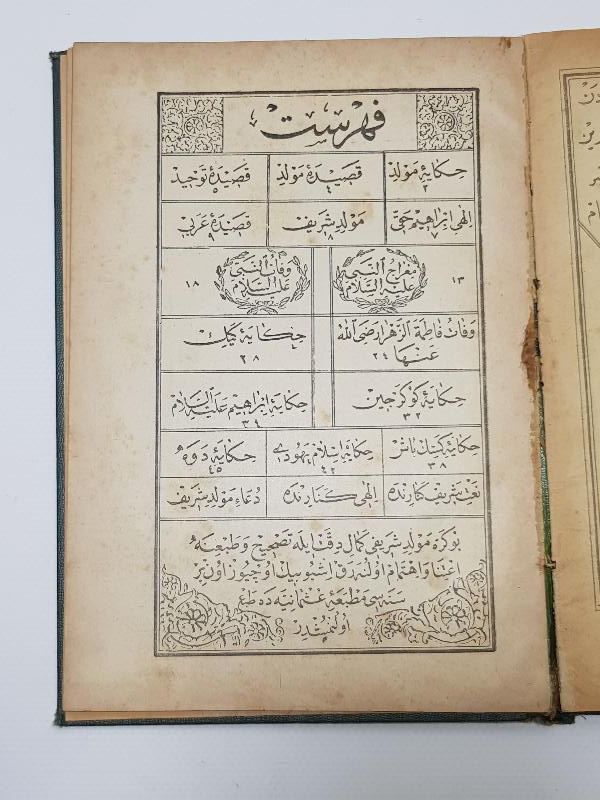 فهرست
حكايهٔ مولد ٣
قصيدهٔ مولد ٤
قصيدهٔ توحيد ٥
الهی ابراهيم حقی ٧
مولد شريف ٨
قصيدهٔ عربی ٩
معراج النبی عليه السلام ١٣
وفات النبی عليه السلام ١٨
وفات فاطمة الزهرا رضی الله عنها ٢٤
حكايهٔ كيك ٢٨
حكايهٔ كوكرجين ٣٢
حكايهٔ ابراهيم عليه السلام ٣٤
حكايهٔ كسك باش ٣٨
حكايهٔ اسلام يهودی ٤٢
حكايهٔ دوه ٤٥
نعت شريف كنارنده
الهی كنارنده
دعاء مولد شريف
بو كره مولد شريفی كمال دقت ايله تصحيح و طبعنه
اعتنا و اهتمام اولنه رق اشبو بيك اوچيوز اون بر
سنه سی مطبعهٔ عثمانيه ده طبع
اولنمشدر